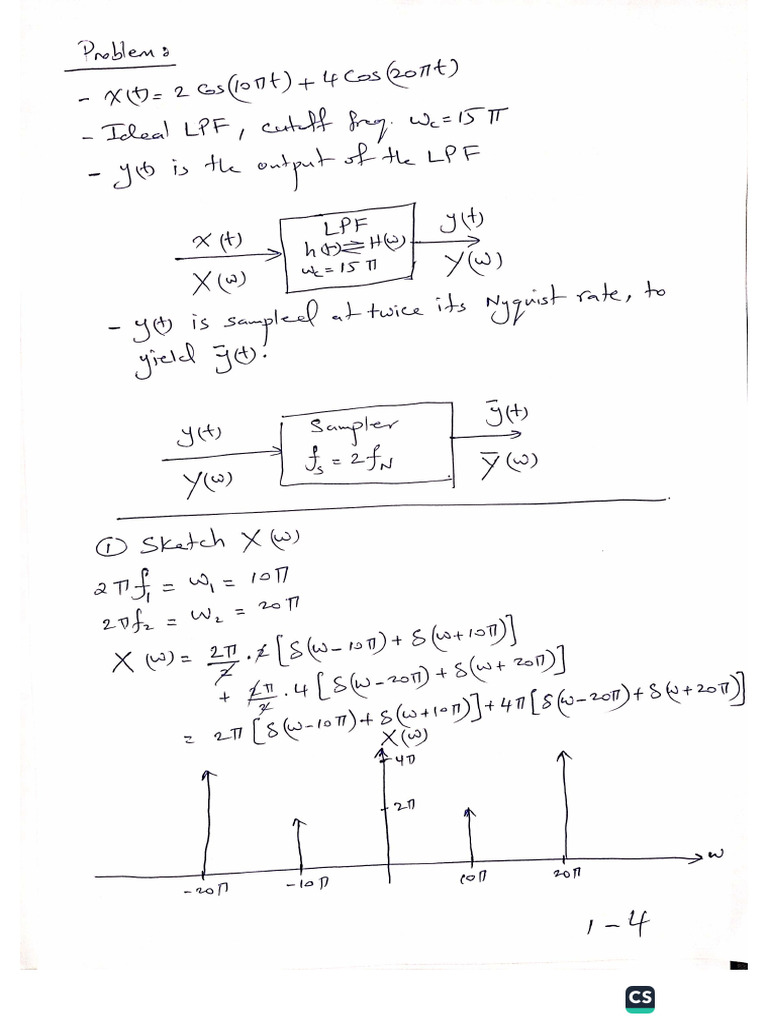 Problem:
- x(t) = 2 Cos(10πt) + 4 Cos(20πt)
- Ideal LPF, cutoff freq. ωc = 15π
- y(t) is the output of the LPF
x(t)
X(ω)
LPF
h(t) ⇌ H(ω)
ωc = 15π
y(t)
Y(ω)
- y(t) is sampled at twice its Nyquist rate, to
yield ȳ(t).
y(t)
Y(ω)
Sampler
fs = 2 fN
ȳ(t)
Ȳ(ω)
① Sketch X(ω)
2πf1 = ω1 = 10π
2πf2 = ω2 = 20π
X(ω) = 2π/2 · 2 [δ(ω-10π) + δ(ω+10π)]
+ 2π/2 · 4 [δ(ω-20π) + δ(ω+20π)]
= 2π [δ(ω-10π) + δ(ω+10π)] + 4π [δ(ω-20π) + δ(ω+20π)]
X(ω)
4π
2π
ω
-20π -10π 10π 20π
1-4
CS